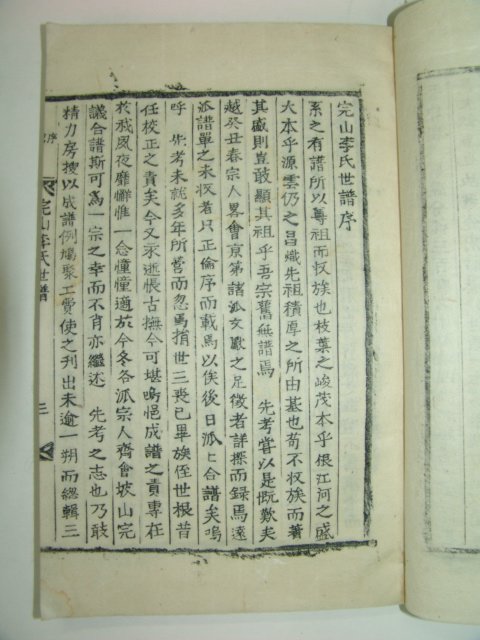 完山李氏世譜序
系之有譜所以尊祖而収族也枝葉之峻茂本乎根江河之盛
大本乎源雲仍之昌熾先祖積厚之所由基也苟不収族而著
其盛則豈敢顯其祖乎吾宗舊無譜焉 先考嘗以是慨歎矣
越癸丑春宗人畧會京第諸派文獻之足徵者詳探而録焉遠
派譜單之未収者只正倫序而載焉以俟後日派〻合譜矣嗚
呼 先考未就多年所營而忽焉捐世三喪已畢族侄世根昔
任校正之責矣今又永逝悵古撫今可堪嗚悒成譜之責專在
於我夙夜靡懈惟一念憧憧適於今冬各派宗人齊會坡山完
議合譜斯可爲一宗之幸而不肖亦繼述 先考之志也乃敢
精力房搜以成譜例爛聚工費使之刊出未逾一朔而緫輯三
序
完山李氏世譜
三